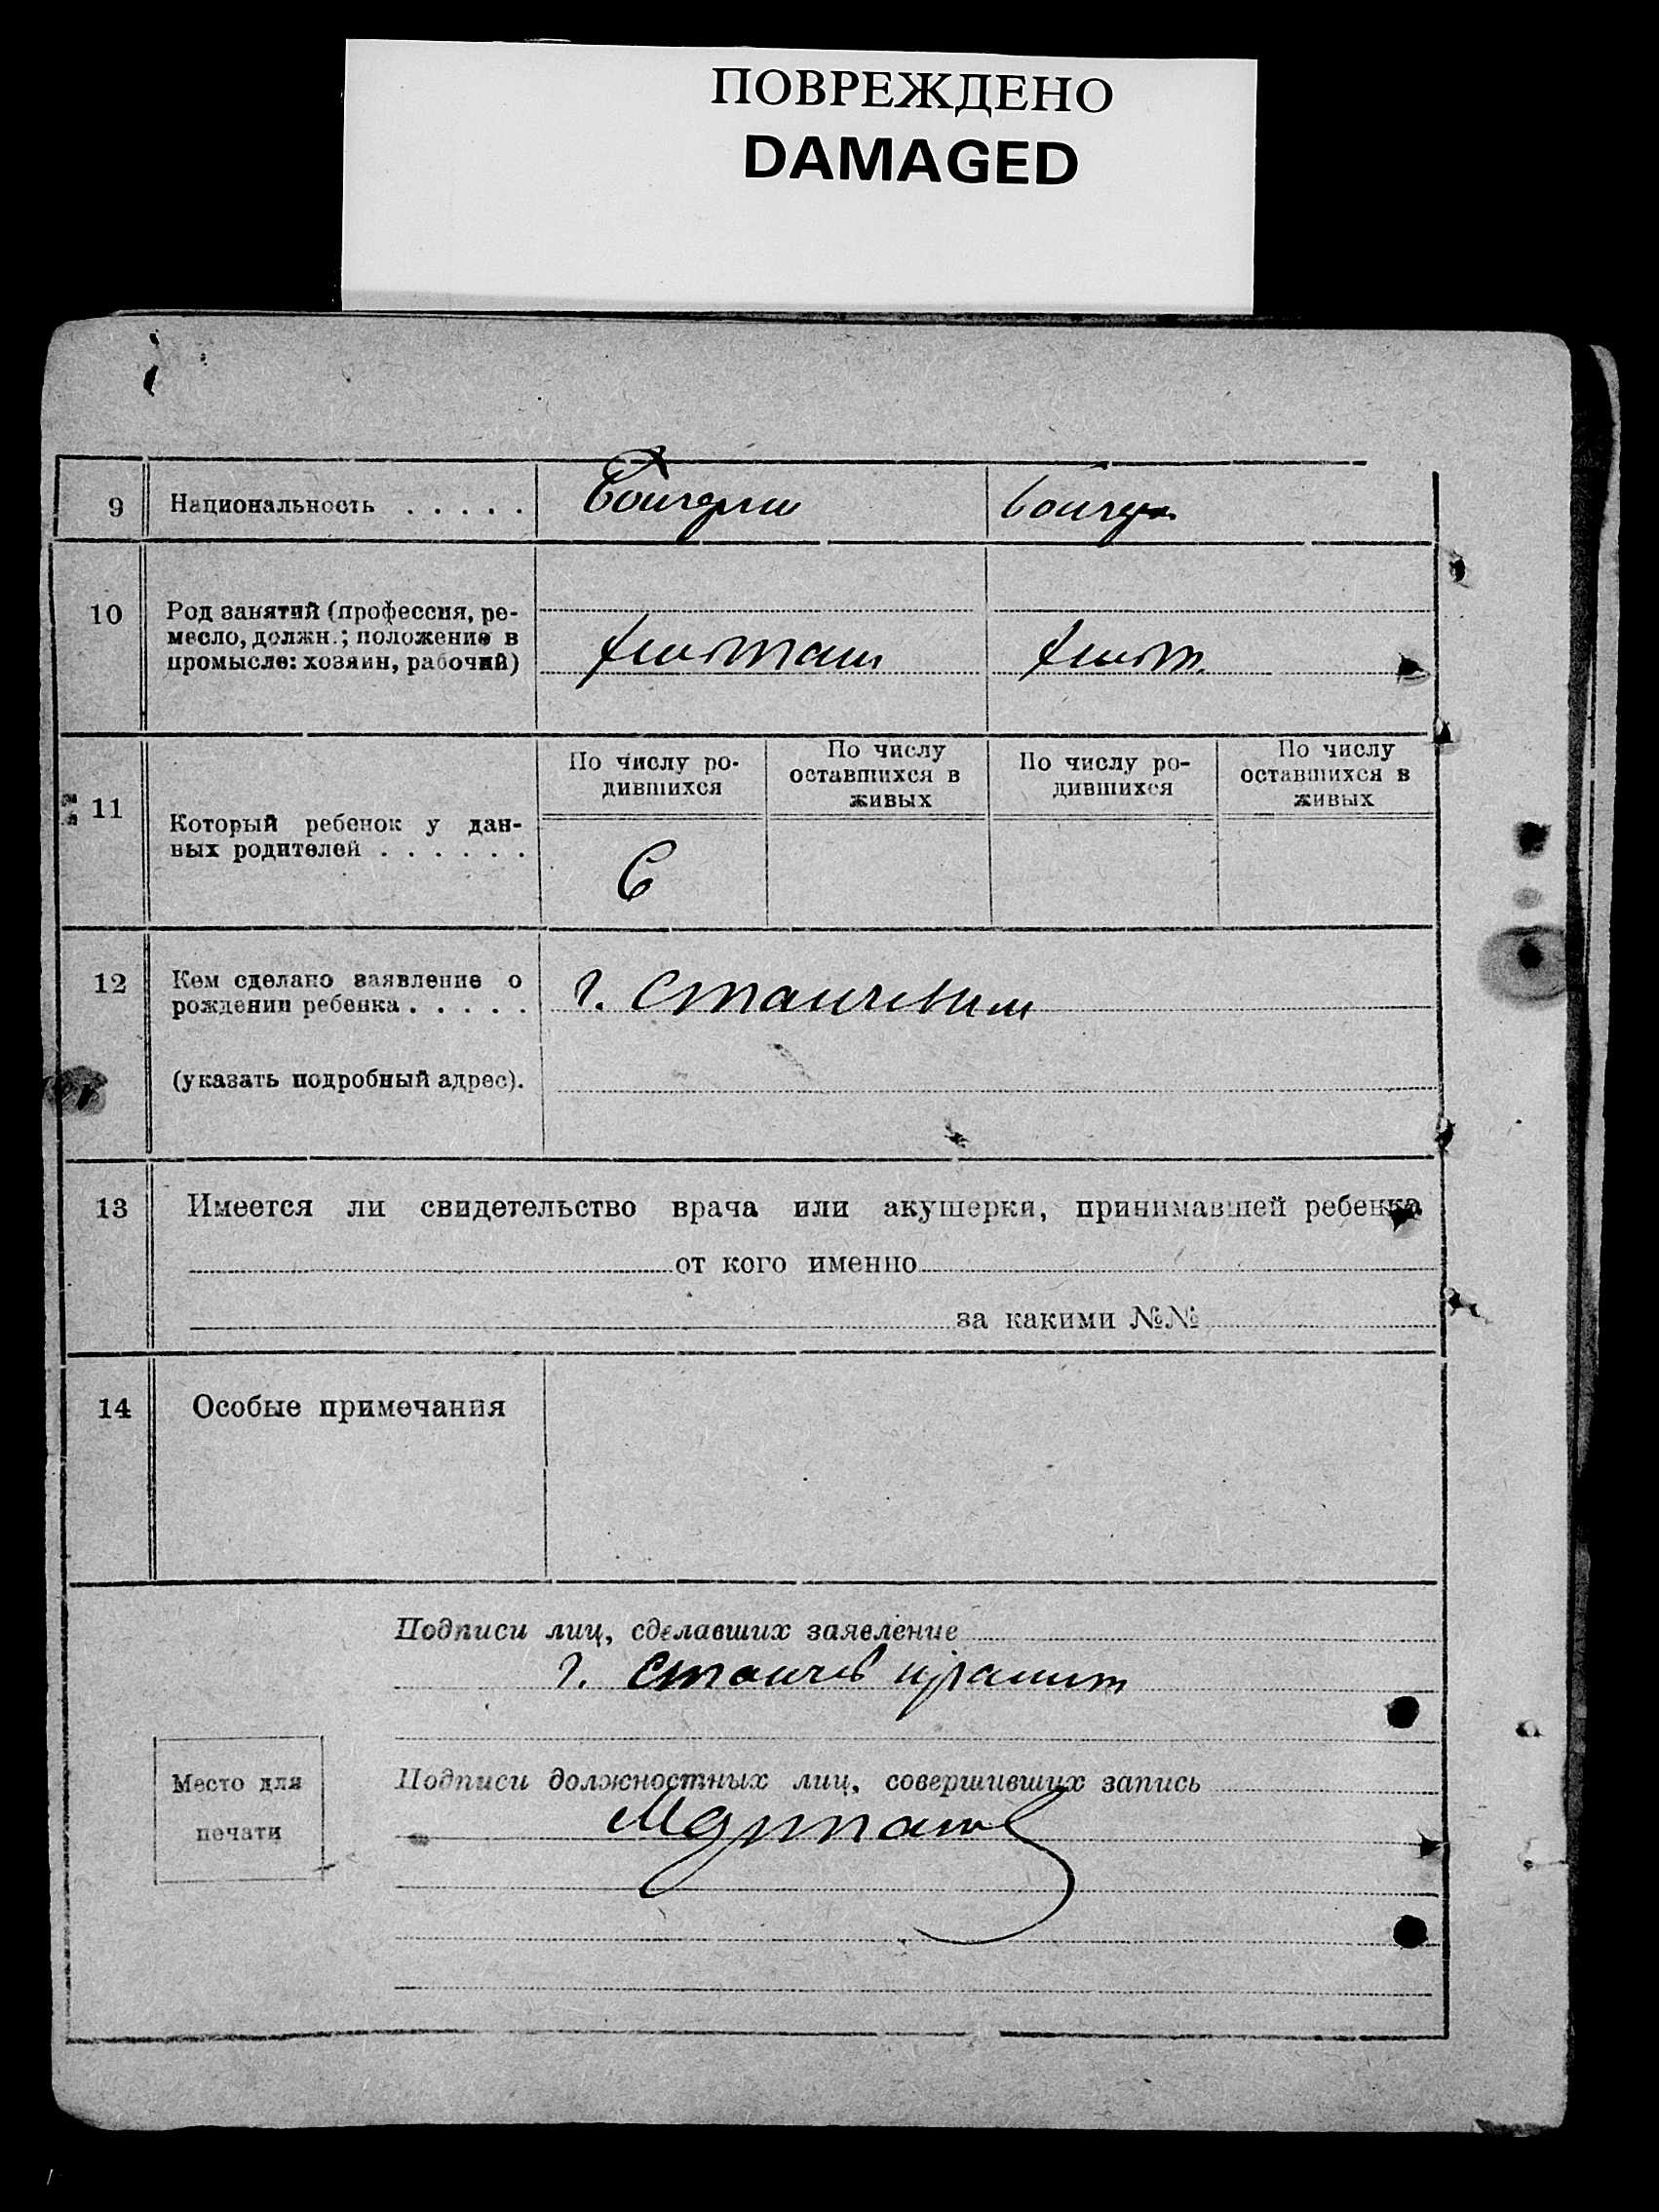 ПОВРЕЖДЕНО
DAMAGED
9 Национальность
10 Род занятий (профессия, ре-
месло, должн.; положение в
промысле: хозяин, рабочий)
11 Который ребенок у дан-
ных родителей
По числу ро-
дившихся
По числу
оставшихся в
живых
По числу ро-
дившихся
По числу
оставшихся в
живых
6
12 Кем сделано заявление о
рождении ребенка
(указать подробный адрес).
13 Имеется ли свидетельство врача или акушерки, принимавшей ребенка
от кого именно
за какими №№
14 Особые примечания
Подписи лиц, сделавших заявление
г. Стоичев
Место для
печати
Подписи должностных лиц, совершивших запись